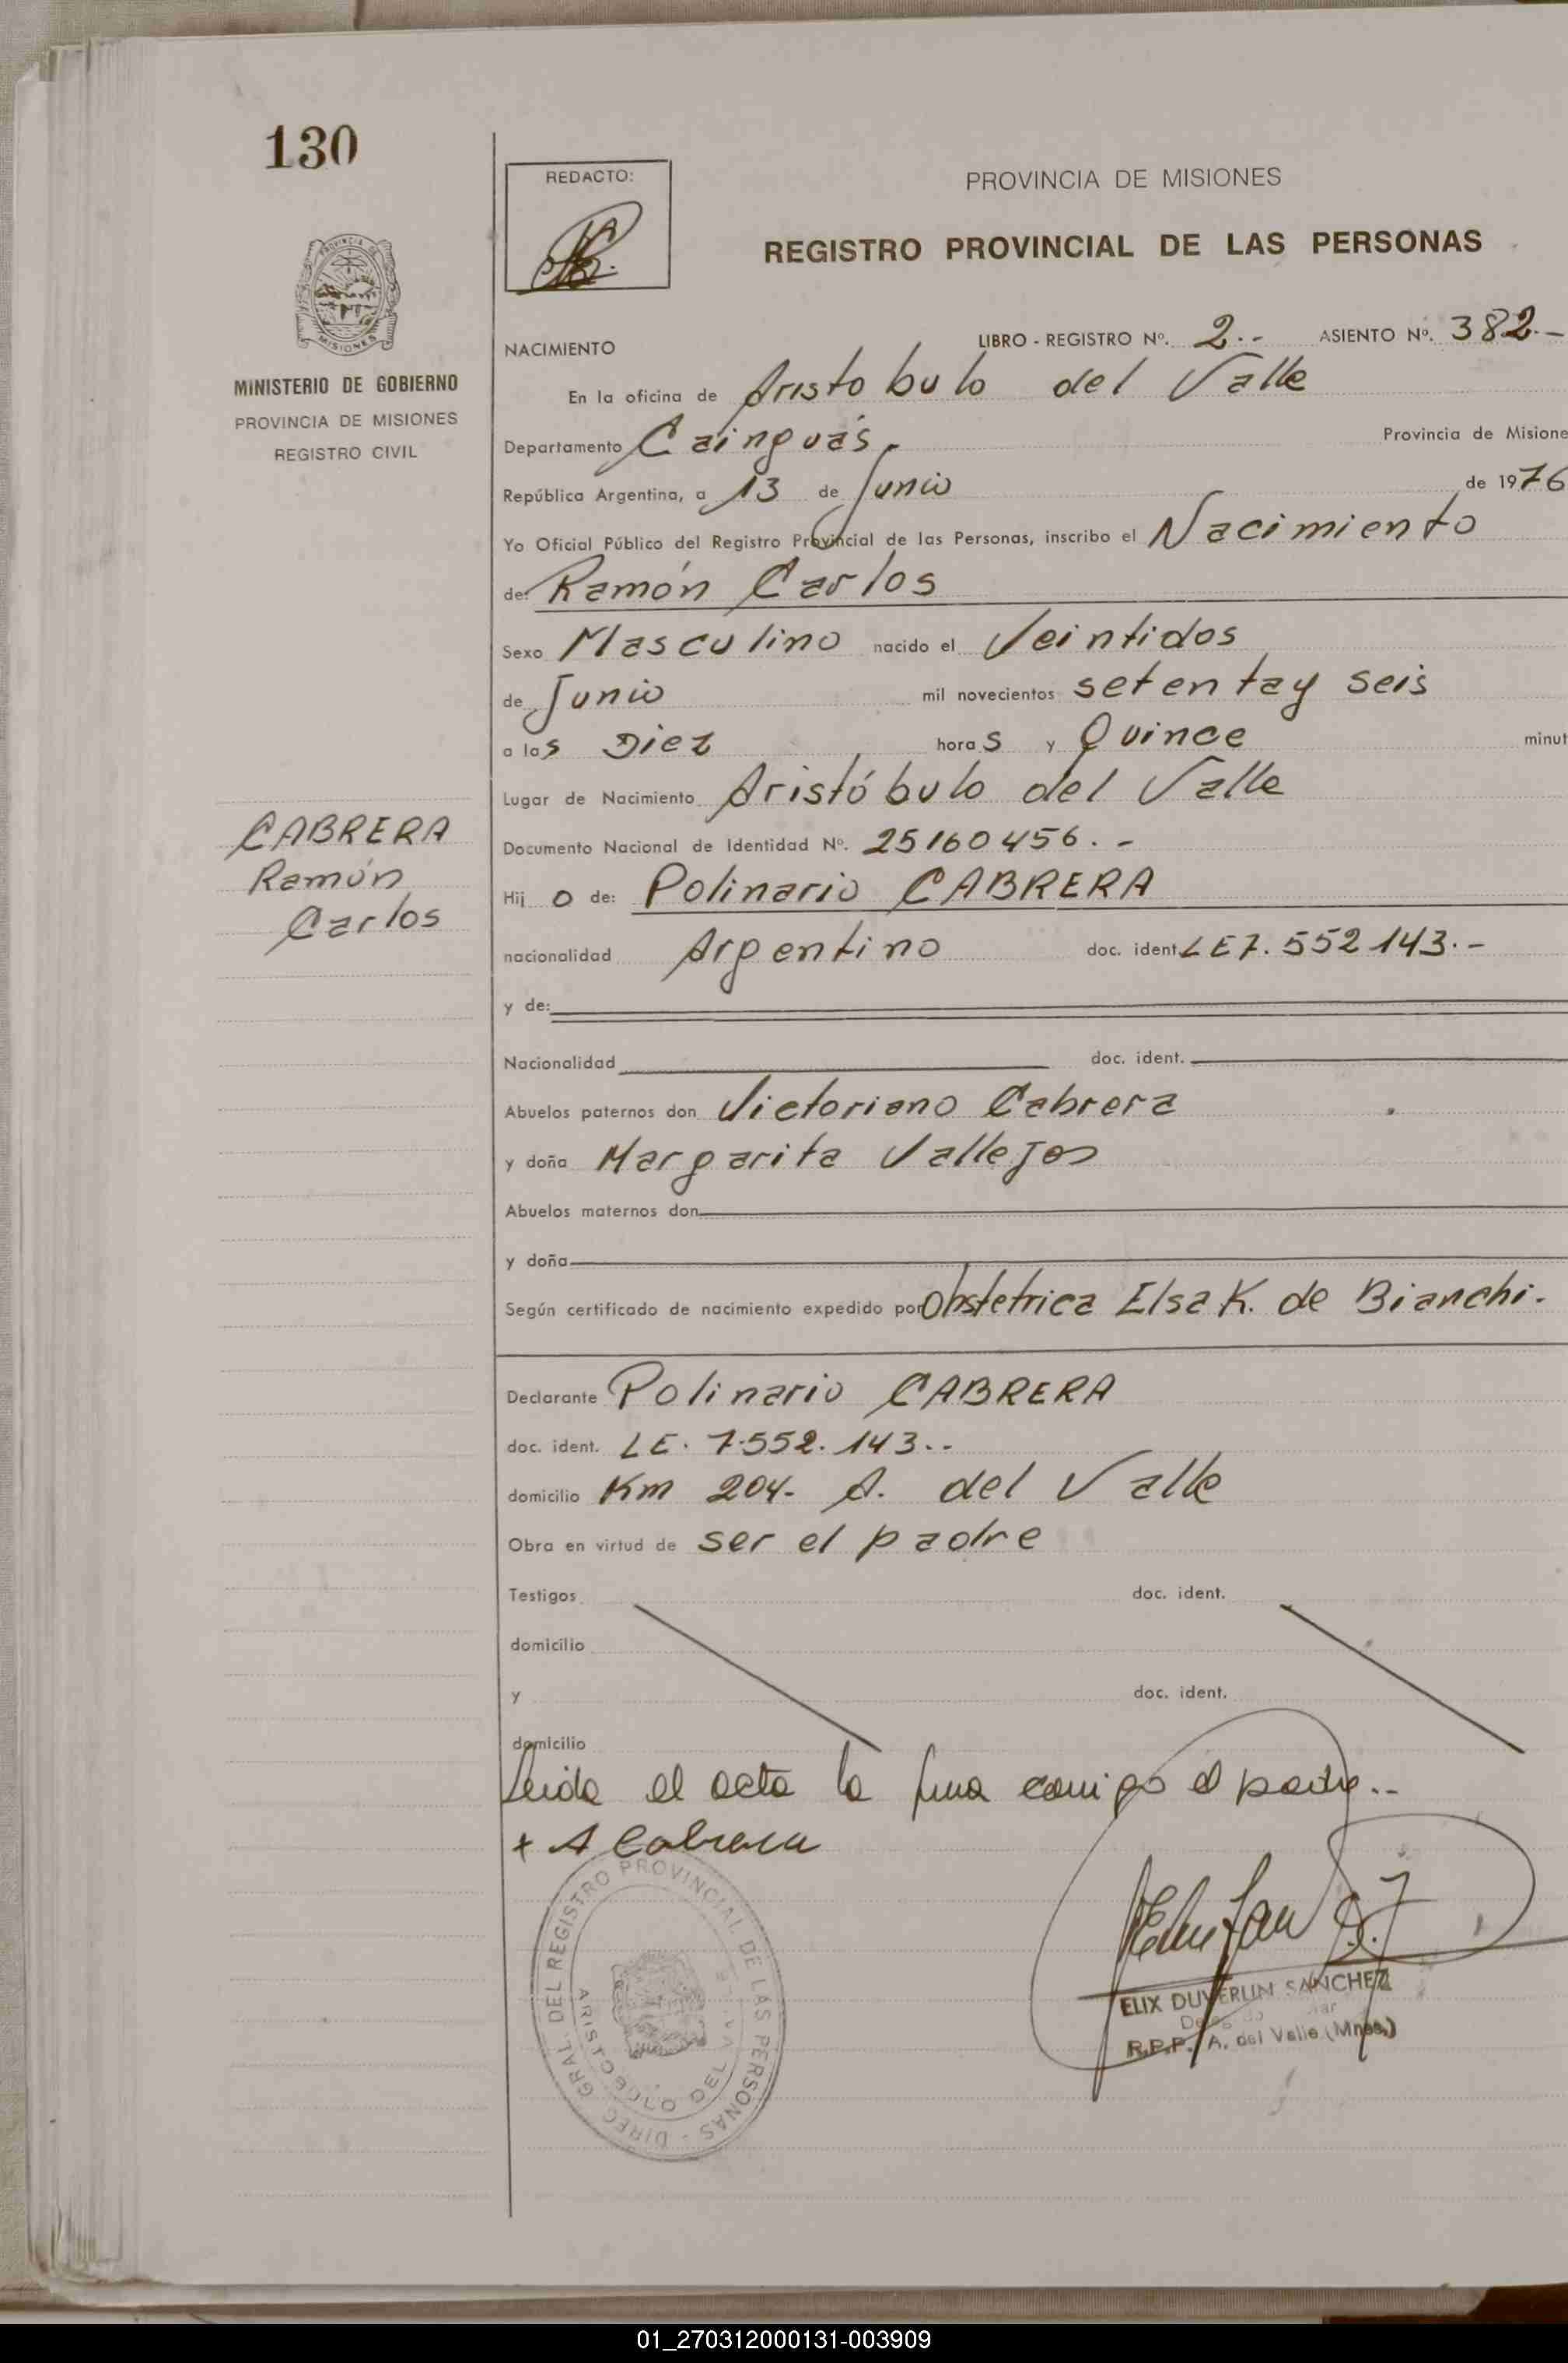 130
REDACTO:
PROVINCIA DE MISIONES
REGISTRO PROVINCIAL DE LAS PERSONAS
MINISTERIO DE GOBIERNO
PROVINCIA DE MISIONES
REGISTRO CIVIL
NACIMIENTO
LIBRO - REGISTRO Nº. 2.- ASIENTO Nº. 382.-
En la oficina de Aristobulo del Valle
Departamento Cainguás. Provincia de Misione
República Argentina, a 13 de Junio de 1976
Yo Oficial Público del Registro Provincial de las Personas, inscribo el Nacimiento
de: Ramón Carlos
Sexo Masculino nacido el Veintidos
de Junio mil novecientos setentay seis
a las Diez horas y Quince minut
Lugar de Nacimiento Aristóbulo del Valle
Documento Nacional de Identidad Nº. 25160456.-
CABRERA
Ramón
Carlos
Hij o de: Polinario CABRERA
nacionalidad Argentino doc. ident. LE7.552143.-
y de:
Nacionalidad doc. ident.
Abuelos paternos don Victoriano Cabrera
y doña Margarita Vallejos
Abuelos maternos don
y doña
Según certificado de nacimiento expedido por Obstetrica Elsa K. de Bianchi.
Declarante Polinario CABRERA
doc. ident. LE. 7.552.143..
domicilio Km 204- A. del Valle
Obra en virtud de ser el padre
Testigos doc. ident.
domicilio
y doc. ident.
domicilio
Leida el acta la firma conmigo el padre..
+ A Cabrera
DIREC. GRAL. DEL REGISTRO PROVINCIAL DE LAS PERSONAS
ARISTOBULO DEL VALLE
ELIX DUVERLIN SANCHEZ
R.P.P. A. del Valle (Mnes.)
01_270312000131-003909